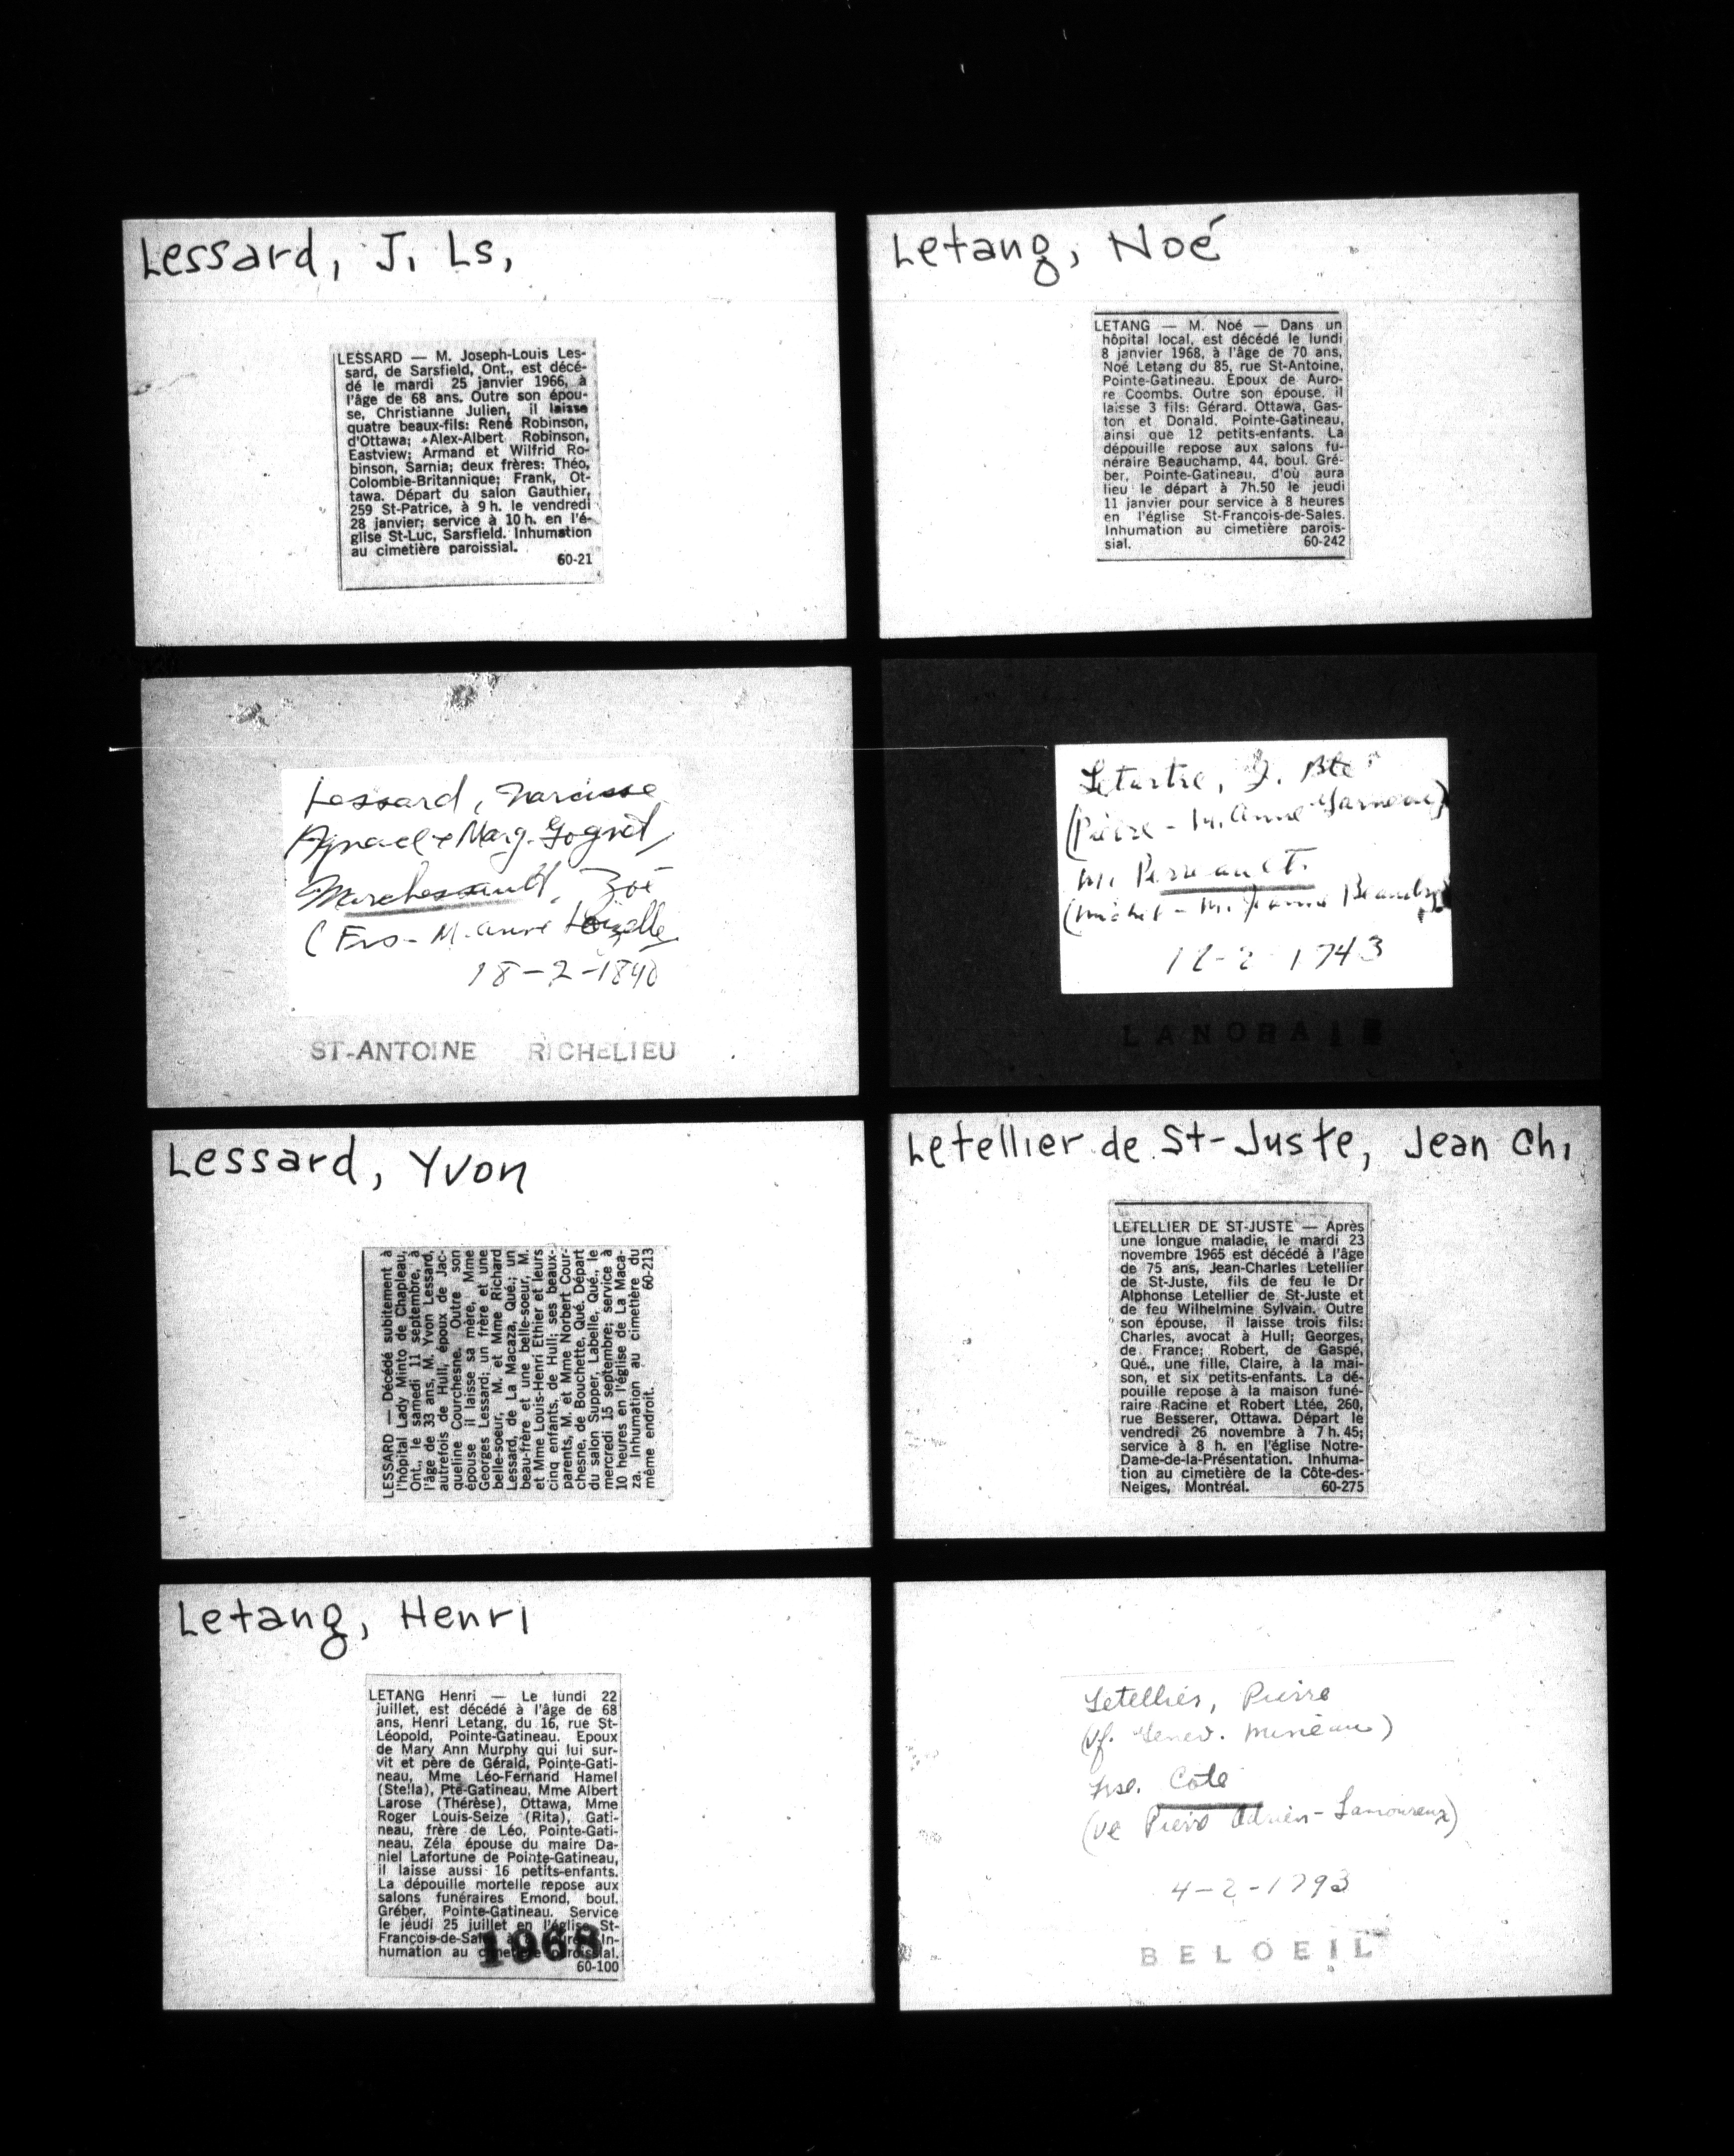 Lessard, J. Ls,
LESSARD — M. Joseph-Louis Les-
sard, de Sarsfield, Ont., est décé-
dé le mardi 25 janvier 1966, à
l'âge de 68 ans. Outre son épou-
se, Christianne Julien, il laisse
quatre beaux-fils: René Robinson,
d'Ottawa; Alex-Albert Robinson,
Eastview; Armand et Wilfrid Ro-
binson, Sarnia; deux frères: Théo,
Colombie-Britannique; Frank, Ot-
tawa. Départ du salon Gauthier,
259 St-Patrice, à 9 h. le vendredi
28 janvier; service à 10 h. en l'é-
glise St-Luc, Sarsfield. Inhumation
au cimetière paroissial.
60-21
Lessard, Narcisse
Marchessault, Zoé
(Frs - M. Anne Loizelle
18-2-1840
ST-ANTOINE RICHELIEU
Lessard, Yvon
LESSARD — Décédé subitement à
l'hôpital Lady Minto de Chapleau,
Ont., le samedi 11 septembre, à
l'âge de 33 ans, M. Yvon Lessard,
autrefois de Hull, époux de Jac-
queline Courchesne. Outre son
épouse il laisse sa mère, Mme
Georges Lessard; un frère et une
belle-soeur, M. et Mme Richard
Lessard, de La Macaza, Qué.; un
beau-frère et une belle-soeur, M.
et Mme Louis-Henri Ethier et leurs
cinq enfants, de Hull; ses beaux-
parents, M. et Mme Norbert Cour-
chesne, de Bouchette, Qué. Départ
du salon Supper, Labelle, Qué., le
mercredi 15 septembre; service à
10 heures en l'église de La Maca-
za. Inhumation au cimetière du
même endroit. 60-213
Letang, Henri
LETANG Henri — Le lundi 22
juillet, est décédé à l'âge de 68
ans, Henri Letang, du 16, rue St-
Léopold, Pointe-Gatineau. Epoux
de Mary Ann Murphy qui lui sur-
vit et père de Gérald, Pointe-Gati-
neau, Mme Léo-Fernand Hamel
(Stella), Pte-Gatineau, Mme Albert
Larose (Thérèse), Ottawa, Mme
Roger Louis-Seize (Rita), Gati-
neau, frère de Léo, Pointe-Gati-
neau, Zéla épouse du maire Da-
niel Lafortune de Pointe-Gatineau,
il laisse aussi 16 petits-enfants.
La dépouille mortelle repose aux
salons funéraires Emond, boul.
Gréber, Pointe-Gatineau. Service
le jeudi 25 juillet en l'église St-
François-de-Sales à In-
humation au cimetière paroissial.
1968
60-100
Letang, Noé
LETANG — M. Noé — Dans un
hôpital local, est décédé le lundi
8 janvier 1968, à l'âge de 70 ans,
Noé Letang du 85, rue St-Antoine,
Pointe-Gatineau. Epoux de Auro-
re Coombs. Outre son épouse, il
laisse 3 fils: Gérard, Ottawa, Gas-
ton et Donald, Pointe-Gatineau,
ainsi que 12 petits-enfants. La
dépouille repose aux salons fu-
néraire Beauchamp, 44, boul. Gré-
ber, Pointe-Gatineau, d'où aura
lieu le départ à 7h.50 le jeudi
11 janvier pour service à 8 heures
en l'église St-François-de-Sales.
Inhumation au cimetière parois-
sial. 60-242
Letartre, J. Bte
(Pierre - M. Anne Garneau)
m. Perreault
(Michel - M. Jeanne Beaudry)
12-2-1743
LANORAIE
Letellier de St-Juste, Jean Ch.
LETELLIER DE ST-JUSTE — Après
une longue maladie, le mardi 23
novembre 1965 est décédé à l'âge
de 75 ans, Jean-Charles Letellier
de St-Juste, fils de feu le Dr
Alphonse Letellier de St-Juste et
de feu Wilhelmine Sylvain. Outre
son épouse, il laisse trois fils:
Charles, avocat à Hull; Georges,
de France; Robert, de Gaspé,
Qué., une fille, Claire, à la mai-
son, et six petits-enfants. La dé-
pouille repose à la maison funé-
raire Racine et Robert Ltée, 260,
rue Besserer, Ottawa. Départ le
vendredi 26 novembre à 7 h. 45;
service à 8 h. en l'église Notre-
Dame-de-la-Présentation. Inhuma-
tion au cimetière de la Côte-des-
Neiges, Montréal. 60-275
Letellier, Pierre
(vf. Genev. )
Cote
(ve Pierre Adrien-Lamoureux)
4-2-1793
BELOEIL